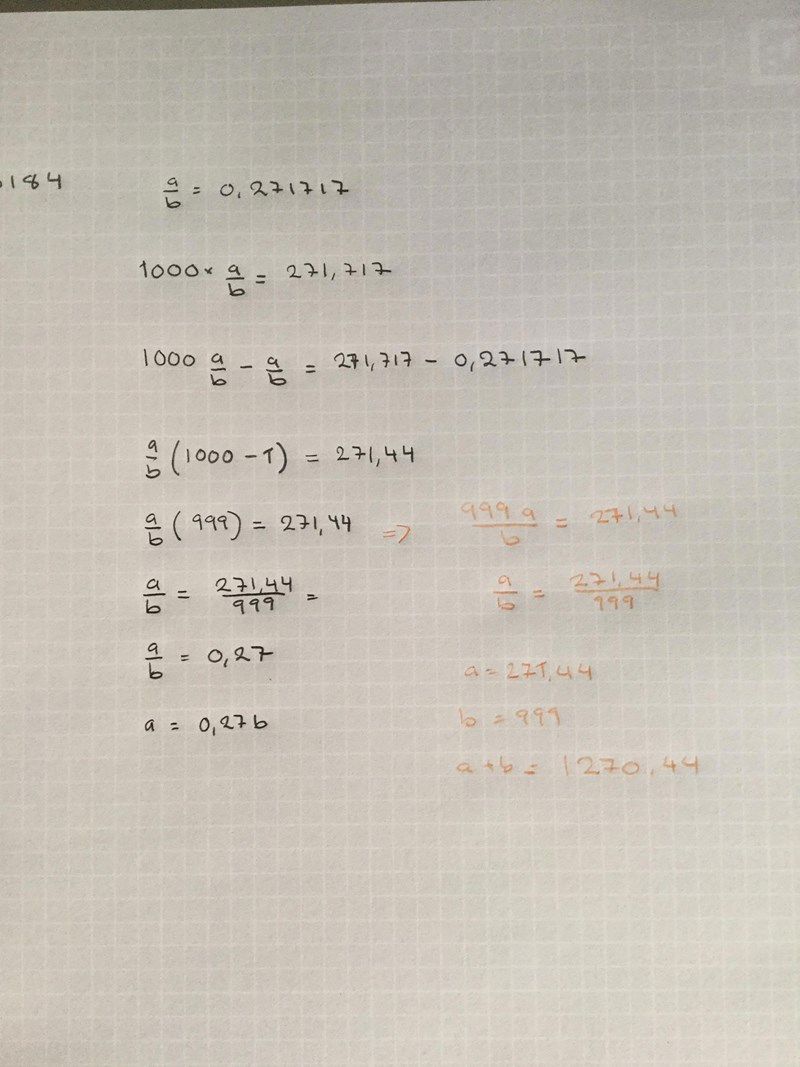 184
a/b = 0,271717
1000 × a/b = 271,717
1000 a/b - a/b = 271,717 - 0,271717
a/b (1000 - 1) = 271,44
a/b (999) = 271,44 => 999a/b = 271,44
a/b = 271,44/999 = a/b = 271,44/999
a/b = 0,27
a = 271,44
a = 0,27b
b = 999
a+b = 1270,44